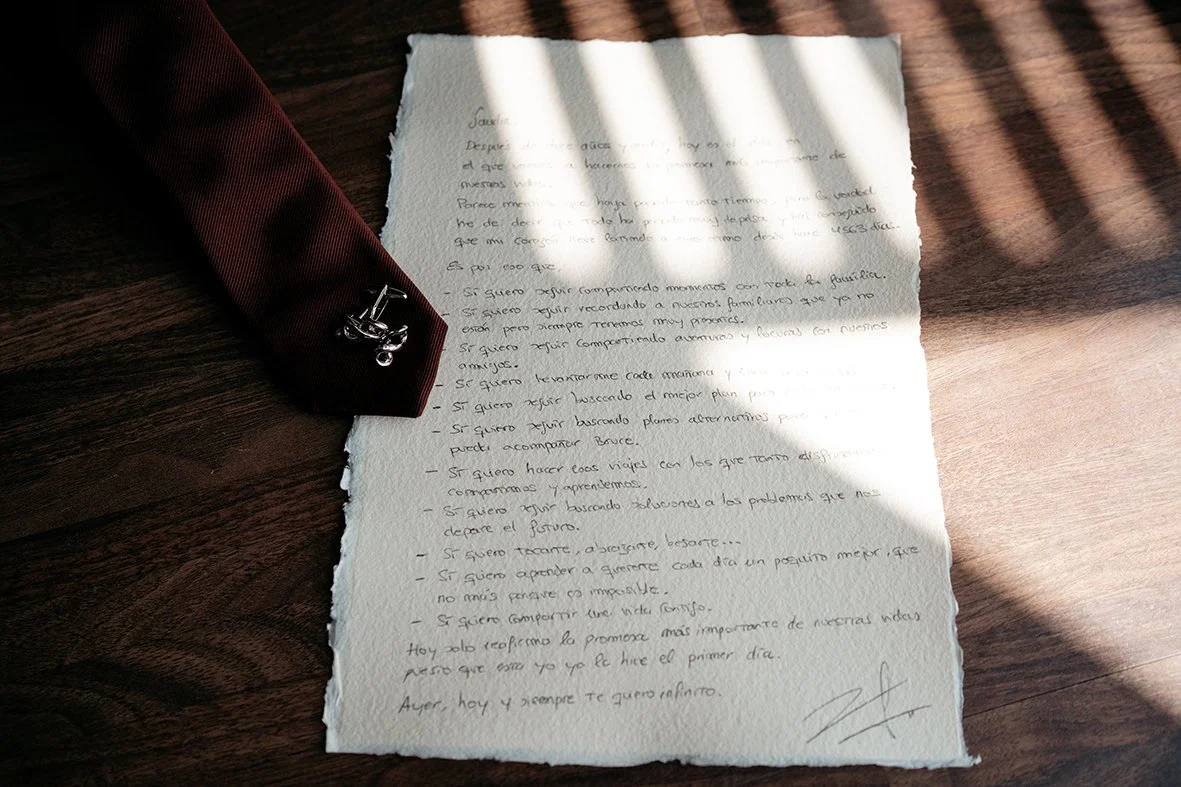 Sandra,
Después de doce años y medio, hoy es el día en
el que vamos a hacernos la promesa más importante de
nuestras vidas.
Parece mentira que haya pasado tanto tiempo, pero la verdad
he de decir que todo ha pasado muy deprisa y has conseguido
que mi corazón lleve latiendo a este ritmo desde hace 4563 días.
Es por eso que,
- Sí quiero seguir compartiendo momentos con toda la familia.
- Sí quiero seguir recordando a nuestros familiares que ya no
están pero siempre tenemos muy presentes.
- Sí quiero seguir compartiendo aventuras y locuras con nuestros
amigos.
- Sí quiero levantarme cada mañana y
- Sí quiero seguir buscando el mejor plan para
- Sí quiero seguir buscando planes alternativos para
pueda acompañar Bruce.
- Sí quiero hacer esos viajes con los que tanto disfrutamos
compartimos y aprendemos.
- Sí quiero seguir buscando soluciones a los problemas que nos
depare el futuro.
- Sí quiero tocarte, abrazarte, besarte...
- Sí quiero aprender a quererte cada día un poquito mejor, que
no más porque es imposible.
- Sí quiero compartir una vida contigo.
Hoy solo reafirmo la promesa más importante de nuestras vidas
puesto que esta yo ya la hice el primer día.
Ayer, hoy y siempre te quiero infinito.